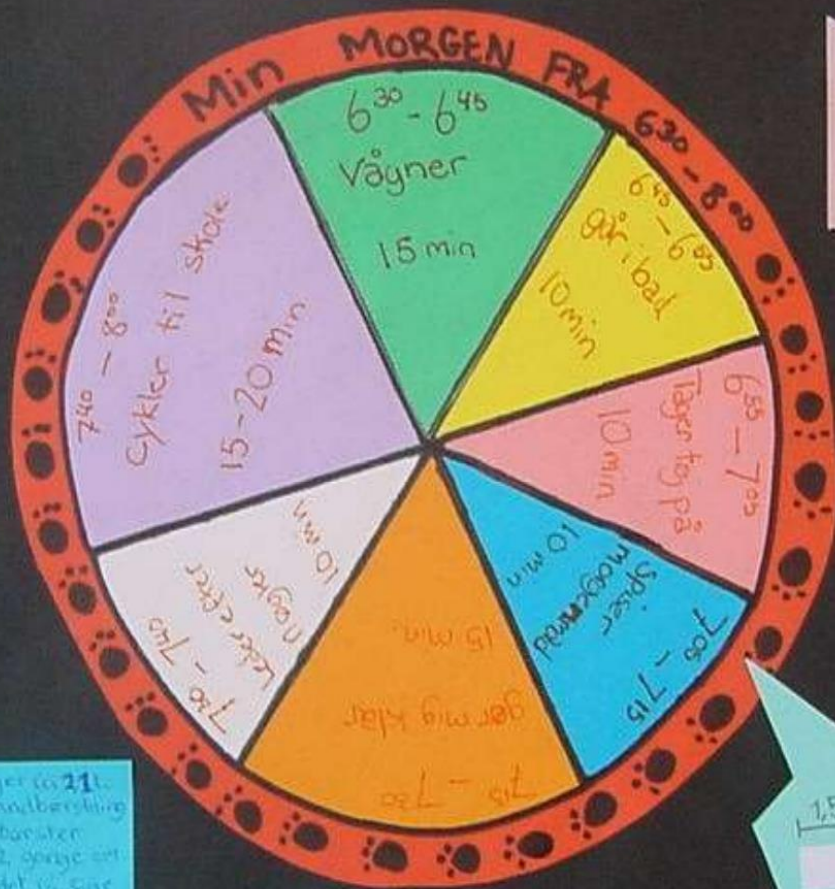 Min MORGEN FRA 630 - 800
6³⁰ - 6⁴⁵
Vågner
15 min
6⁴⁵ - 6⁵⁵
Går i bad
10 min
6⁵⁵ - 7⁰⁵
Tager tøj på
10 min
7⁰⁵ - 7¹⁵
Spiser
morgenmad
10 min
7¹⁵ - 7³⁰
gør mig klar
15 min.
7³⁰ - 7⁴⁰
Leder efter
nøgler
10 min
7⁴⁰ - 8⁰⁰
Cykler til skole
15-20 min